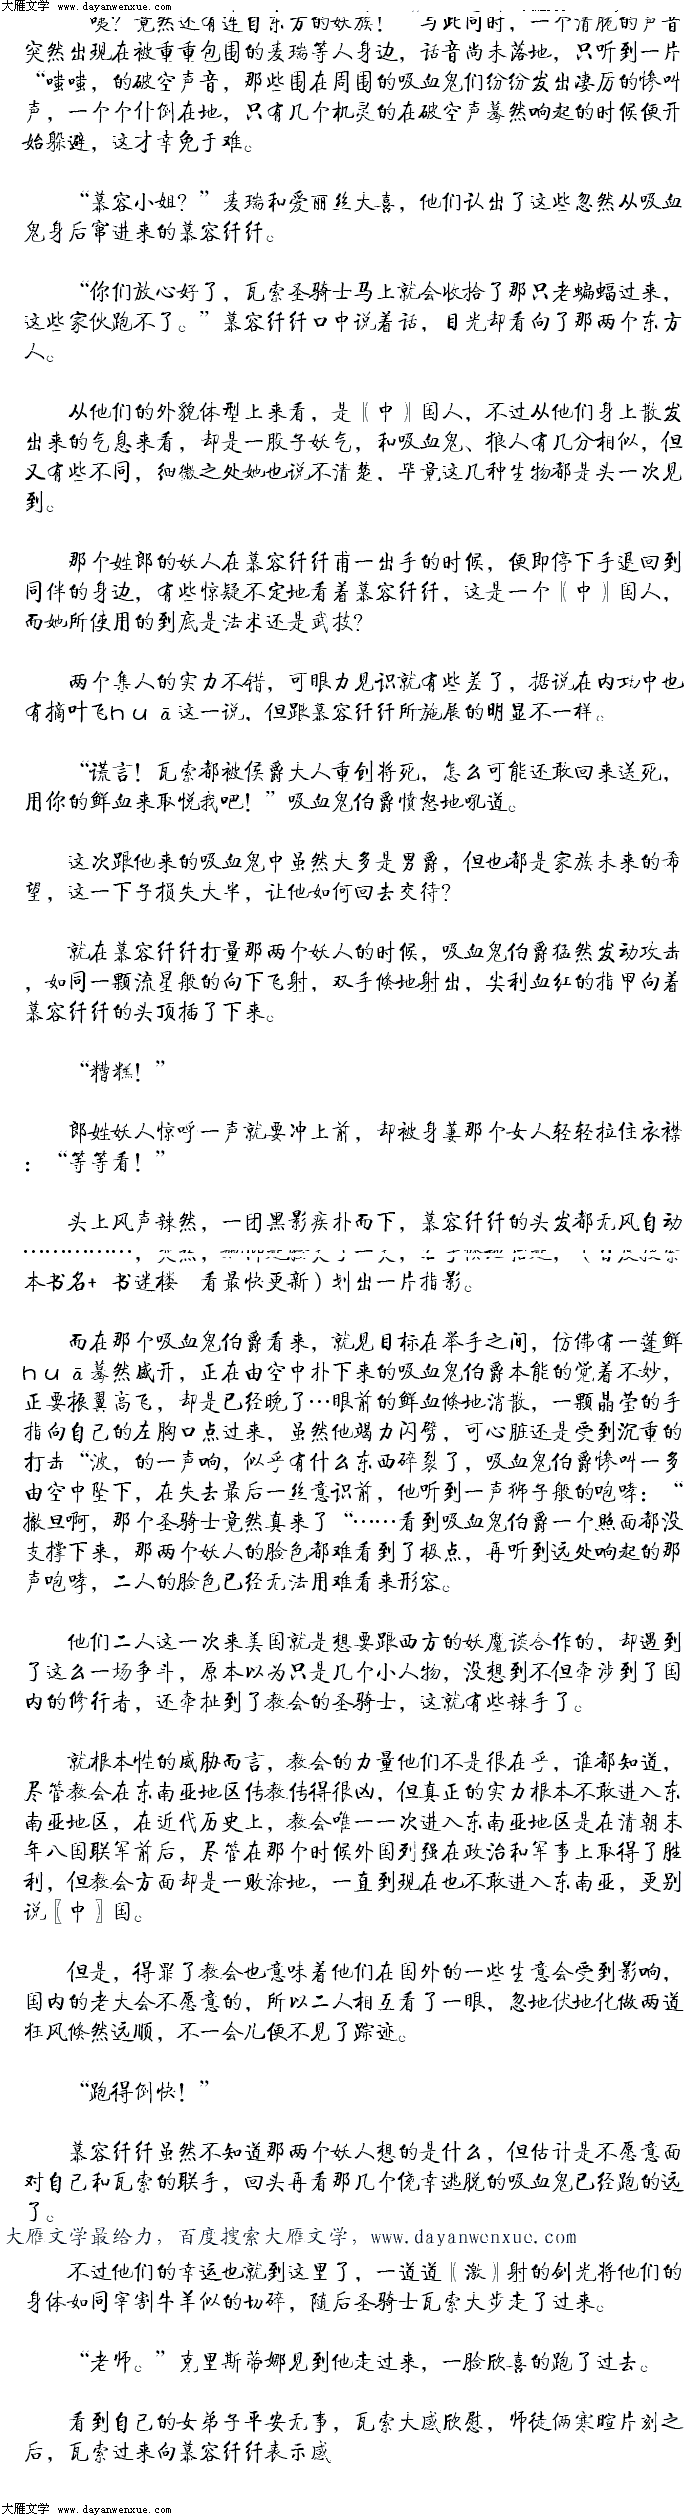 大雁文学 www.dayanwenxue.com
“咦？竟然还有连自东方的妖族！”与此同时，一个清脆的声音
突然出现在被重重包围的麦瑞等人身边，话音尚未落地，只听到一片
“嗤嗤，的破空声音，那些围在周围的吸血鬼们纷纷发出凄厉的惨叫
声，一个个仆倒在地，只有几个机灵的在破空声蓦然响起的时候便开
始躲避，这才幸免于难。
“慕容小姐？”麦瑞和爱丽丝大喜，他们认出了这些忽然从吸血
鬼身后窜进来的慕容纤纤。
“你们放心好了，瓦索圣骑士马上就会收拾了那只老蝙蝠过来，
这些家伙跑不了。”慕容纤纤口中说着话，目光却看向了那两个东方
人。
从他们的外貌体型上来看，是〖中〗国人，不过从他们身上散发
出来的气息来看，却是一股子妖气，和吸血鬼、狼人有几分相似，但
又有些不同，细微之处她也说不清楚，毕竟这几种生物都是头一次见
到。
那个姓郎的妖人在慕容纤纤甫一出手的时候，便即停下手退回到
同伴的身边，有些惊疑不定地看着慕容纤纤，这是一个〖中〗国人，
而她所使用的到底是法术还是武技？
两个集人的实力不错，可眼力见识就有些差了，据说在内功中也
有摘叶飞huā这一说，但跟慕容纤纤所施展的明显不一样。
“谎言！瓦索都被侯爵大人重创将死，怎么可能还敢回来送死，
用你的鲜血来取悦我吧！”吸血鬼伯爵愤怒地吼道。
这次跟他来的吸血鬼中虽然大多是男爵，但也都是家族未来的希
望，这一下子损失大半，让他如何回去交待？
就在慕容纤纤打量那两个妖人的时候，吸血鬼伯爵猛然发动攻击
，如同一颗流星般的向下飞射，双手倏地射出，尖利血红的指甲向着
慕容纤纤的头顶插了下来。
“糟糕！”
郎姓妖人惊呼一声就要冲上前，却被身蒌那个女人轻轻拉住衣襟
：“等等看！”
头上风声辣然，一团黑影疾扑而下，慕容纤纤的头发都无风自动
本书名+ 书迷楼 看最快更新）划出一片指影。
而在那个吸血鬼伯爵看来，就见目标在举手之间，仿佛有一蓬鲜
huā蓦然盛开，正在由空中扑下来的吸血鬼伯爵本能的觉着不妙，
正要振翼高飞，却是已经晚了…眼前的鲜血倏地消散，一颗晶莹的手
指向自己的左胸口点过来，虽然他竭力闪劈，可心脏还是受到沉重的
打击“波，的一声响，似乎有什么东西碎裂了，吸血鬼伯爵惨叫一多
由空中坠下，在失去最后一丝意识前，他听到一声狮子般的咆哮：“
撒旦啊，那个圣骑士竟然真来了“……看到吸血鬼伯爵一个照面都没
支撑下来，那两个妖人的脸色都难看到了极点，再听到远处响起的那
声咆哮，二人的脸色已经无法用难看来形容。
他们二人这一次来美国就是想要跟西方的妖魔谈合作的，却遇到
了这么一场争斗，原本以为只是几个小人物，没想到不但牵涉到了国
内的修行者，还牵扯到了教会的圣骑士，这就有些辣手了。
就根本性的威胁而言，教会的力量他们不是很在乎，谁都知道，
尽管教会在东南亚地区传教传得很凶，但真正的实力根本不敢进入东
南亚地区，在近代历史上，教会唯一一次进入东南亚地区是在清朝末
年八国联军前后，尽管在那个时候外国列强在政治和军事上取得了胜
利，但教会方面却是一败涂地，一直到现在也不敢进入东南亚，更别
说〖中〗国。
但是，得罪了教会也意味着他们在国外的一些生意会受到影响，
国内的老大会不愿意的，所以二人相互看了一眼，忽地伏地化做两道
狂风倏然远顺，不一会儿便不见了踪迹。
“跑得倒快！”
慕容纤纤虽然不知道那两个妖人想的是什么，但估计是不愿意面
对自己和瓦索的联手，回头再看那几个侥幸逃脱的吸血鬼已经跑的远
了。
大雁文学最给力，百度搜索大雁文学，www.dayanwenxue.com
不过他们的幸运也就到这里了，一道道〖激〗射的剑光将他们的
身体如同宰割牛羊似的切碎，随后圣骑士瓦索大步走了过来。
“老师。”克里斯蒂娜见到他走过来，一脸欣喜的跑了过去。
看到自己的女弟子平安无事，瓦索大感欣慰，师徒俩寒暄片刻之
后，瓦索过来向慕容纤纤表示感
大雁文学 www.dayanwenxue.com